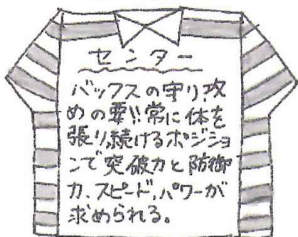 センター
バックスの守り、攻
めの要!!常に体を
張り続けるポジショ
ンで突破力と防御
力、スピード、パワーが
求められる。